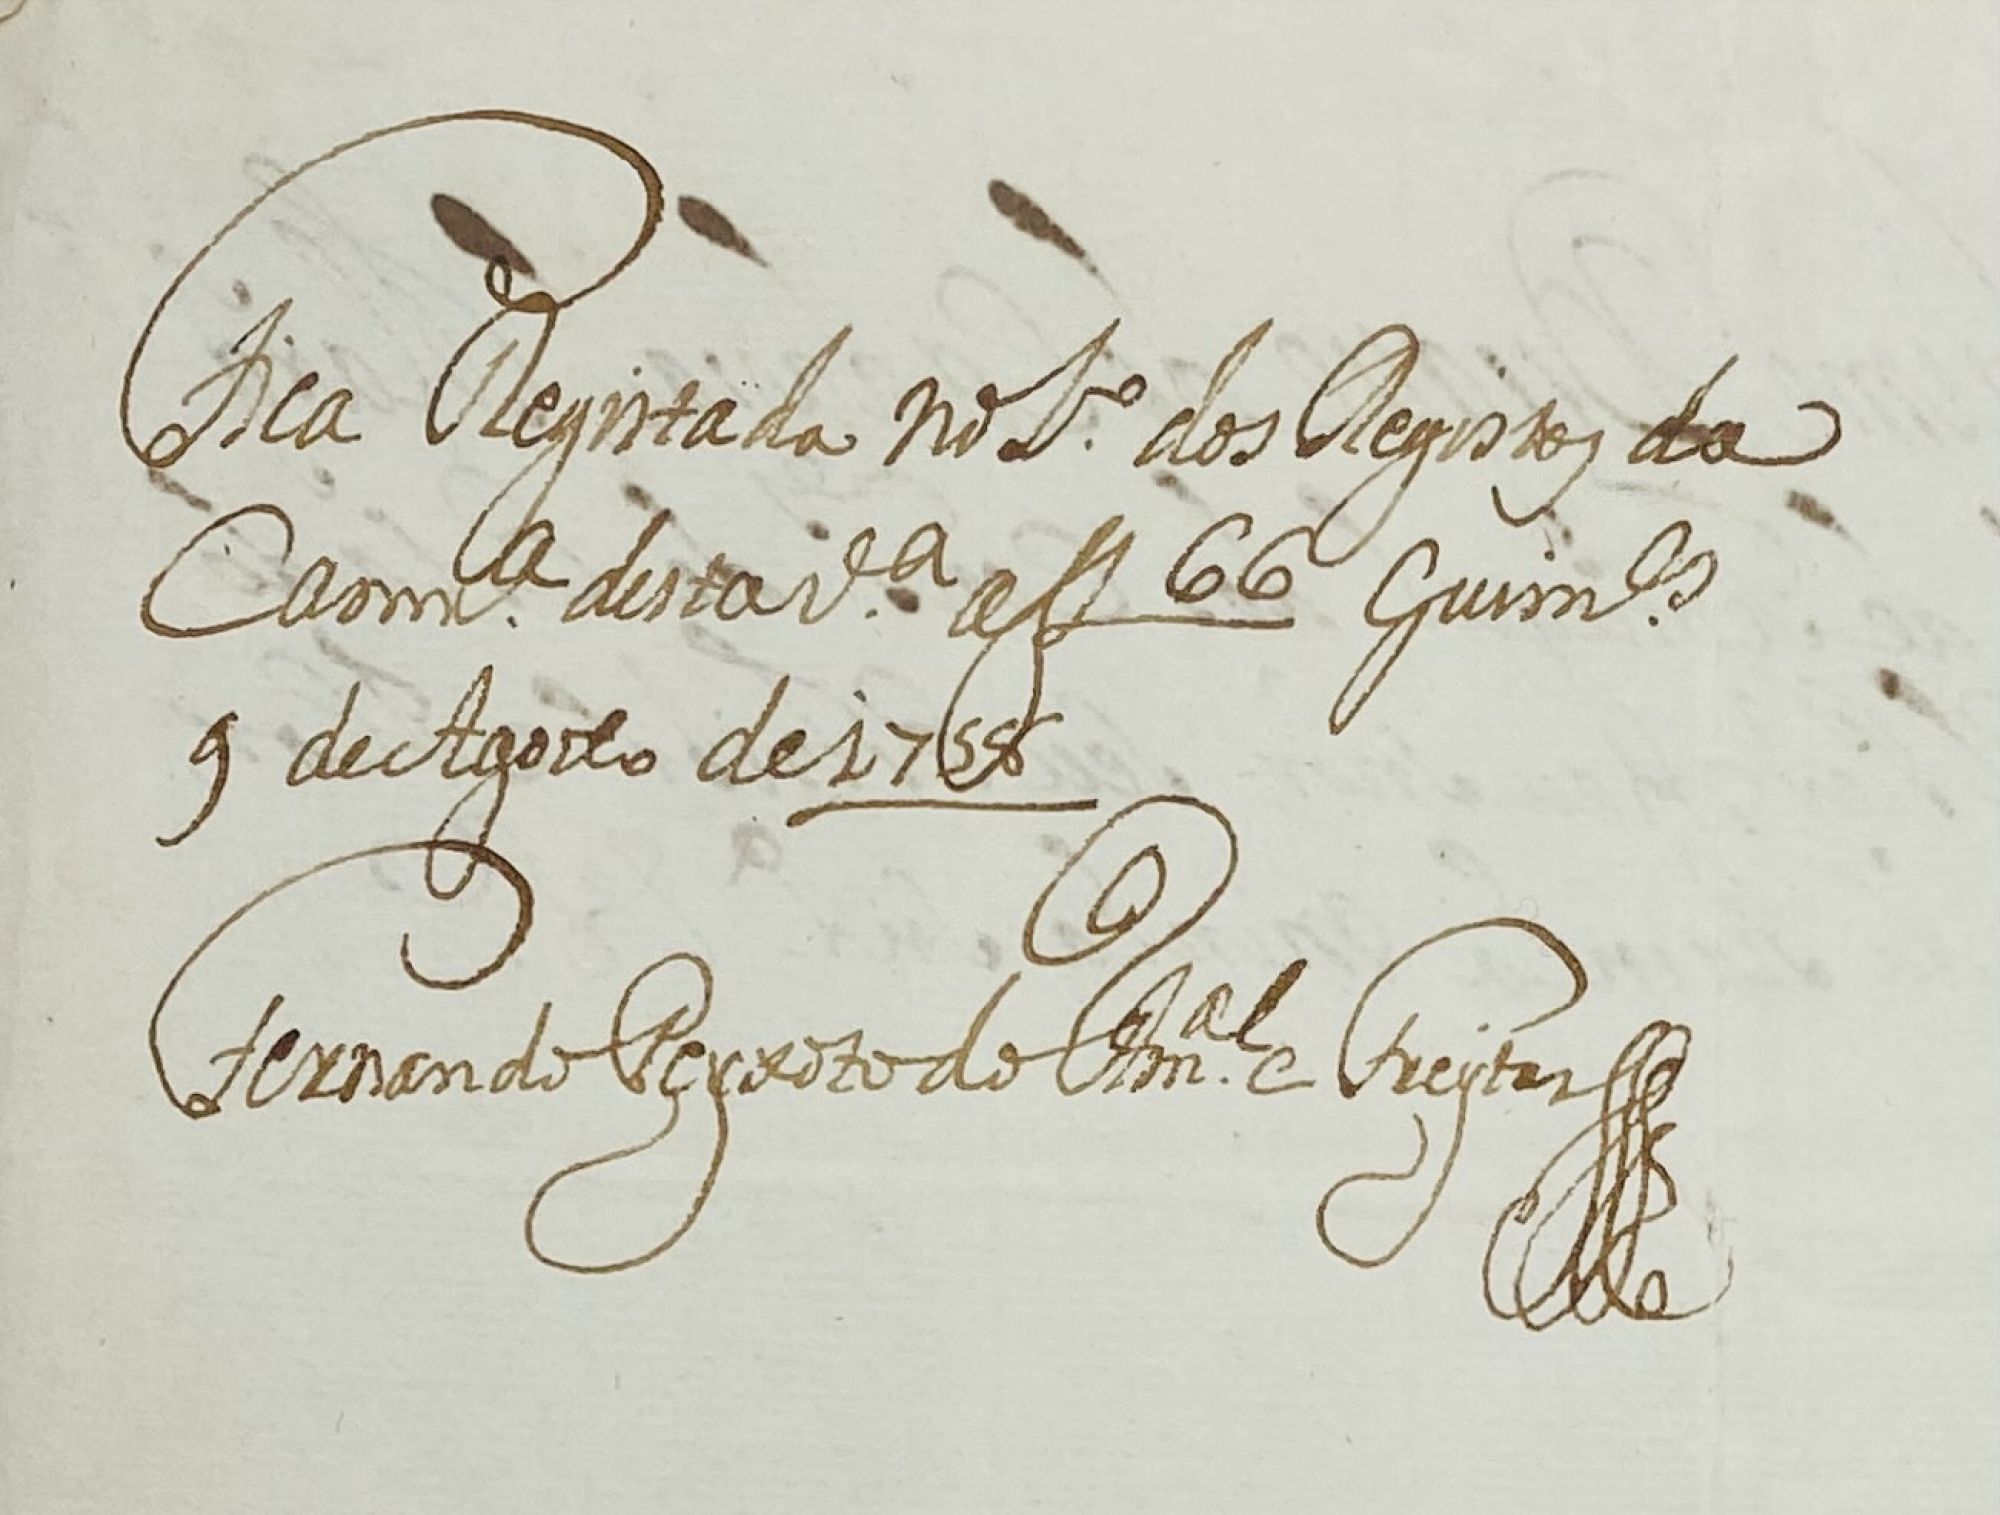 Fica Registada no L.º dos Registos da
Camr.ª desta V.ª a ff 66 Guim.es
9 de Agosto de 1758
Fernando Peyxoto do Am.al e Freytas